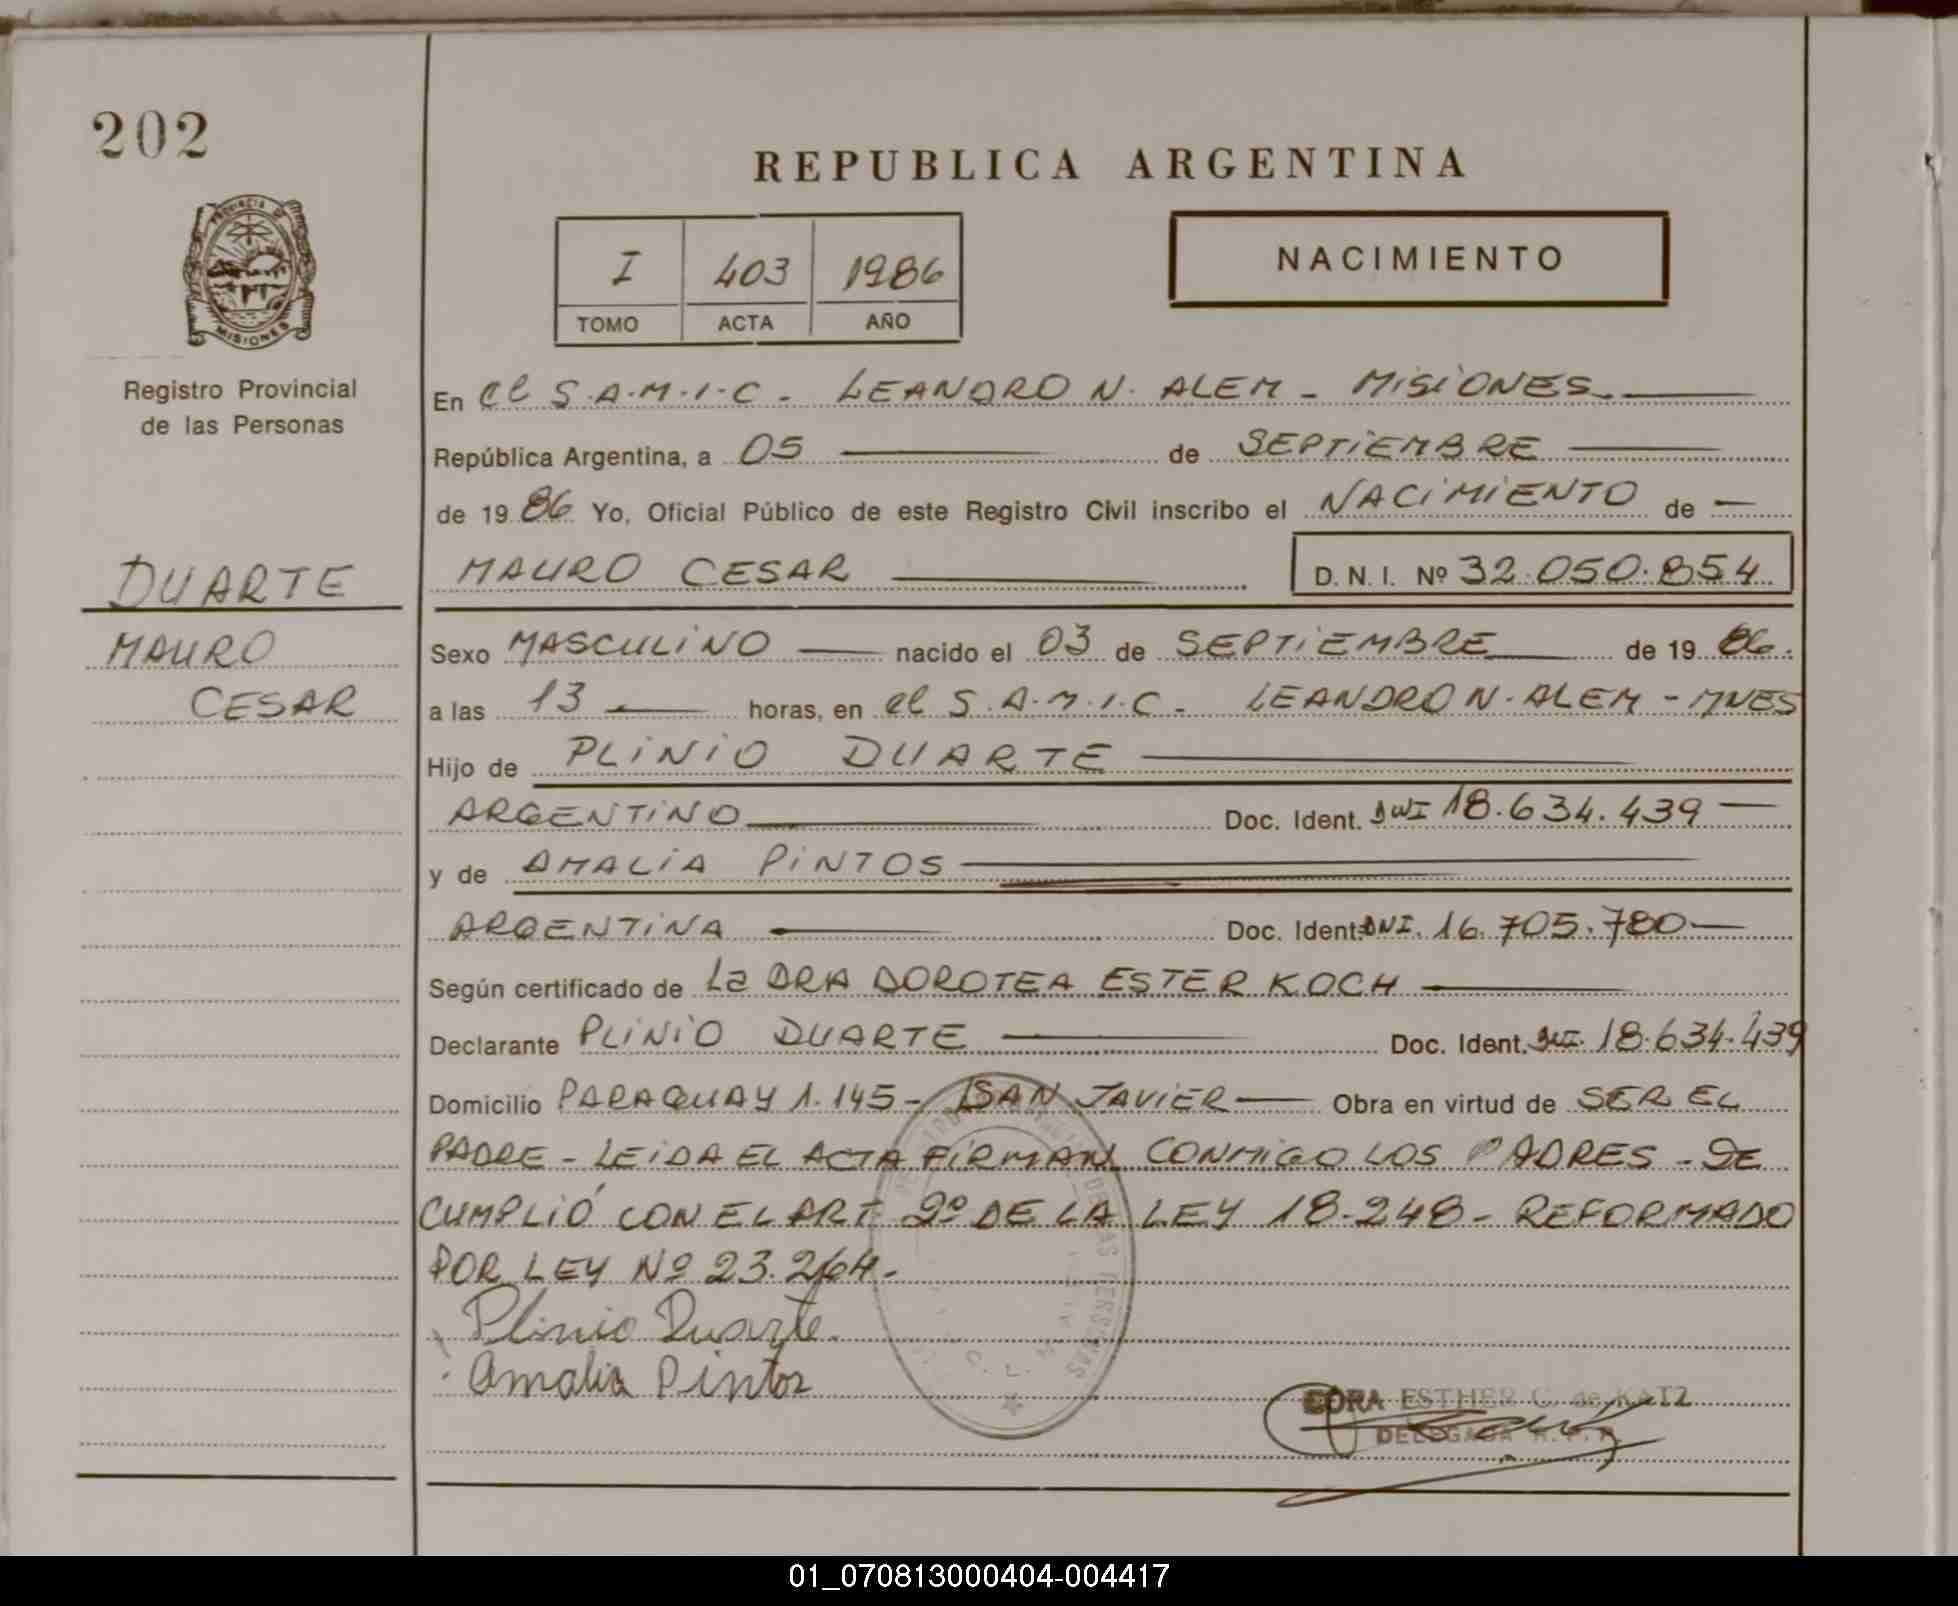 202
REPUBLICA ARGENTINA
PROVINCIA DE
MISIONES
I 403 1986
TOMO ACTA AÑO
NACIMIENTO
Registro Provincial
de las Personas
DUARTE
MAURO
CESAR
En el S.A.M.I.C. - LEANDRO N. ALEM - MISIONES.
República Argentina, a 05 de SEPTIEMBRE
de 1986 Yo, Oficial Público de este Registro Civil inscribo el NACIMIENTO de
MAURO CESAR D. N. I. Nº 32.050.854
Sexo MASCULINO nacido el 03 de SEPTIEMBRE de 1986.
a las 13 horas, en el S.A.M.I.C. - LEANDRO N. ALEM - MNES
Hijo de PLINIO DUARTE
ARGENTINO Doc. Ident. DNI 18.634.439
y de AMALIA PINTOS
ARGENTINA Doc. Ident. DNI. 16.705.780
Según certificado de La DRA DOROTEA ESTER KOCH
Declarante PLINIO DUARTE Doc. Ident. DNI. 18.634.439
Domicilio PARAQUAY 1.145 - SAN JAVIER Obra en virtud de SER EL
PADRE - LEIDA EL ACTA FIRMAN CONMIGO LOS PADRES - SE
CUMPLIÓ CON EL ART 2º DE LA LEY 18.248 - REFORMADO
POR LEY Nº 23.264.
Plinio Duarte
Amalia Pintos
DE LAS PERSONAS
CORA ESTHER C. de KATZ
DELEGADA R. P. P.
01_070813000404-004417